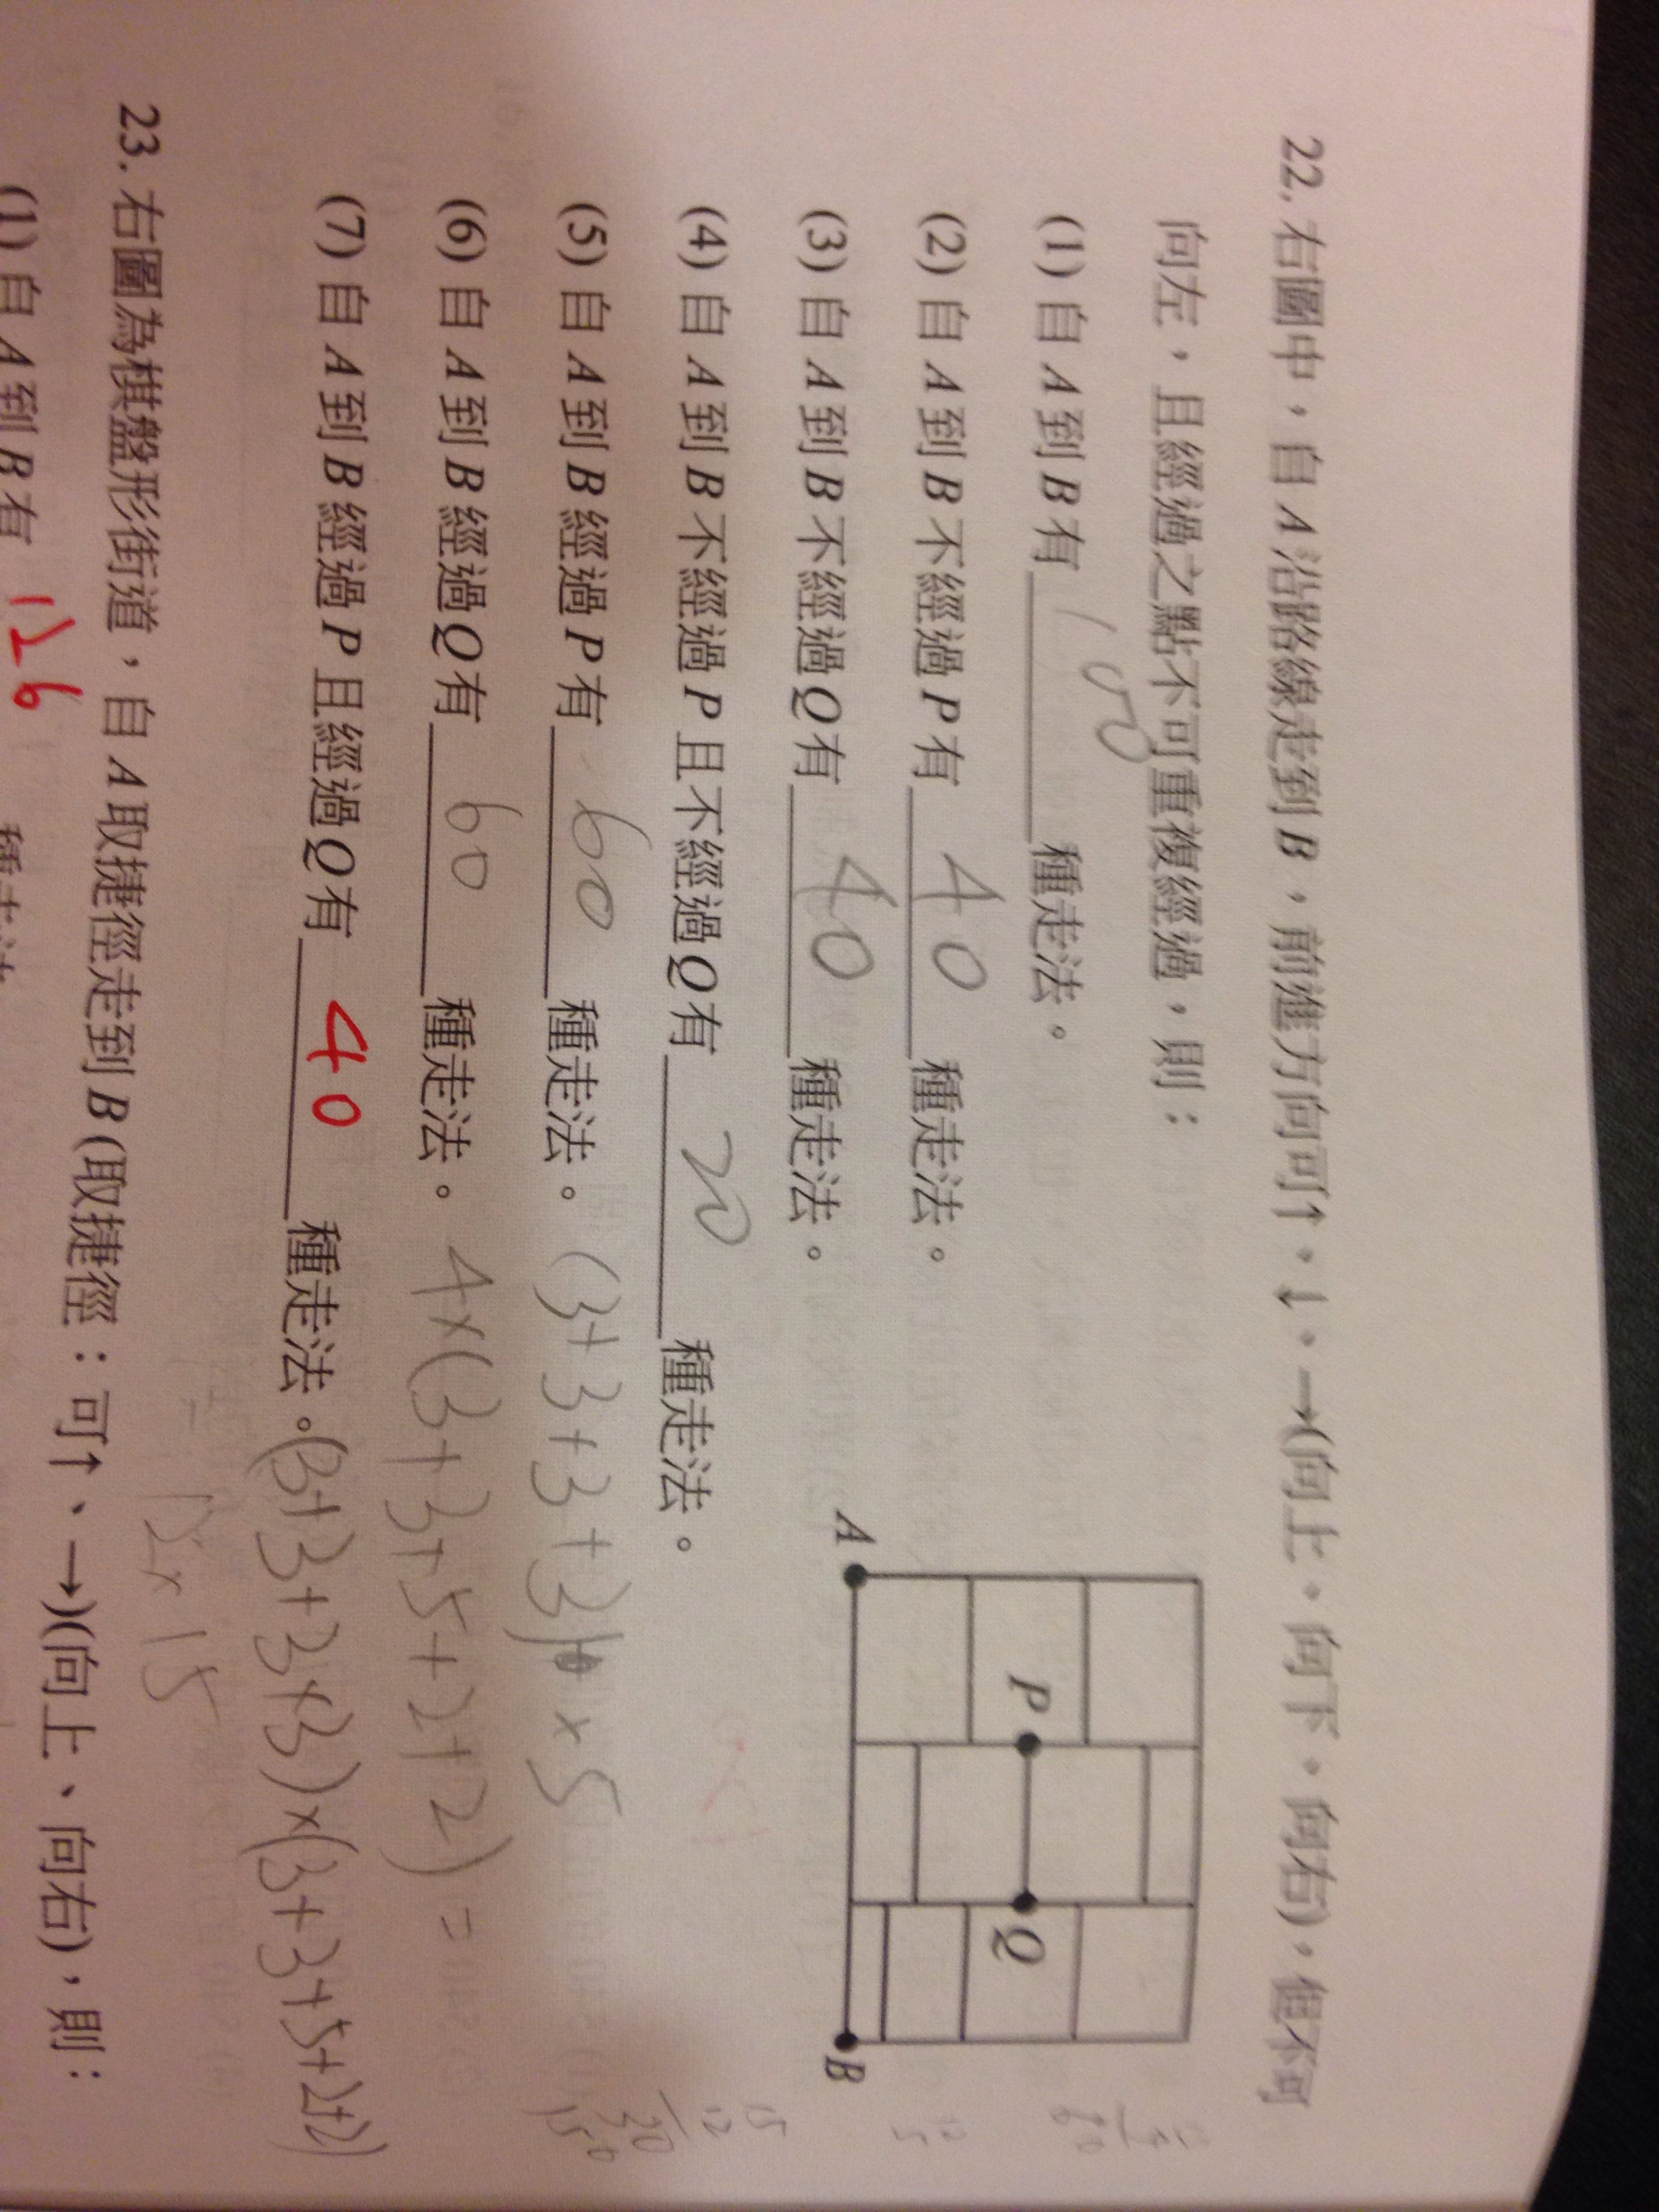 22. 右圖中，自 A 沿路線走到 B，前進方向可↑、↓、→(向上、向下、向右)，但不可
向左，且經過之點不可重複經過，則：
(1) 自 A 到 B 有 100 種走法。
(2) 自 A 到 B 不經過 P 有 40 種走法。
(3) 自 A 到 B 不經過 Q 有 40 種走法。
(4) 自 A 到 B 不經過 P 且不經過 Q 有 20 種走法。
(5) 自 A 到 B 經過 P 有 60 種走法。(3+3+3+3) × 5
(6) 自 A 到 B 經過 Q 有 60 種走法。4×(3+3+5+2+2) =
(7) 自 A 到 B 經過 P 且經過 Q 有 40 種走法。(3+3+3×3)×(3+3+5+2+2)
12×15
A
P
Q
B
15
12
30
150
23. 右圖為棋盤形街道，自 A 取捷徑走到 B (取捷徑：可↑、→)(向上、向右)，則：
(1) 自 A 到 B 有 126